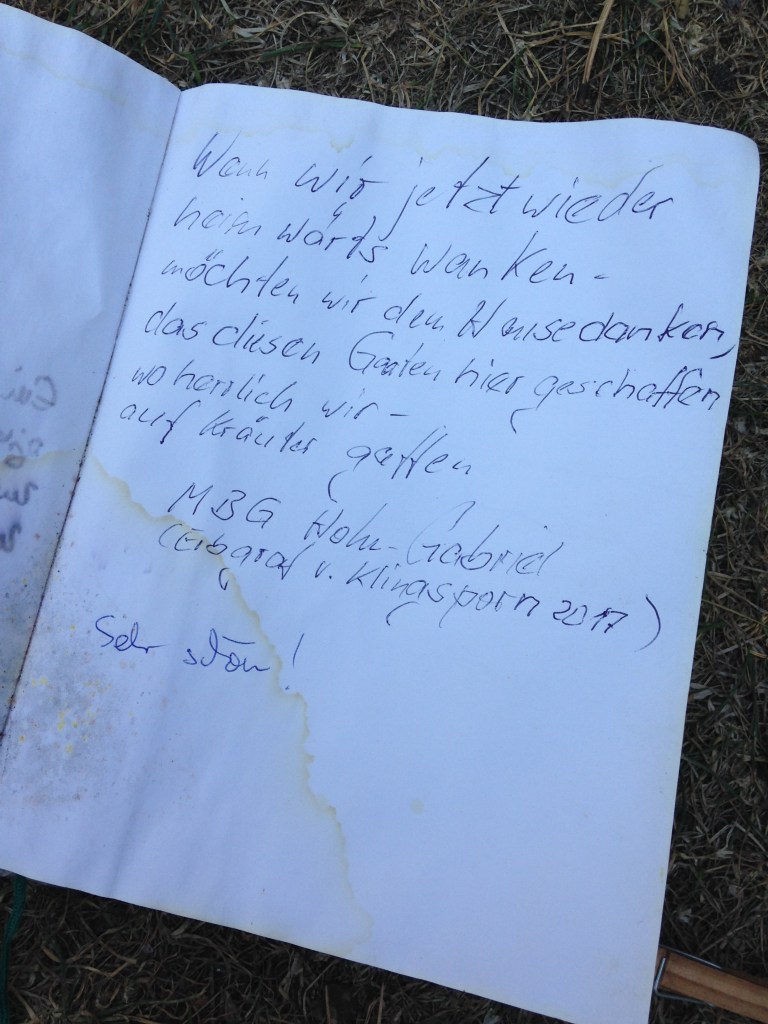 Wenn wir jetzt wieder
heimwärts wanken -
möchten wir dem Hause danken,
das diesen Garten hier geschaffen
wo herrlich wir -
auf Kräuter gaffen
MBG Hohn-Gabriel
(Erbgraf v. Klingsporn 2017)
Sehr schön!